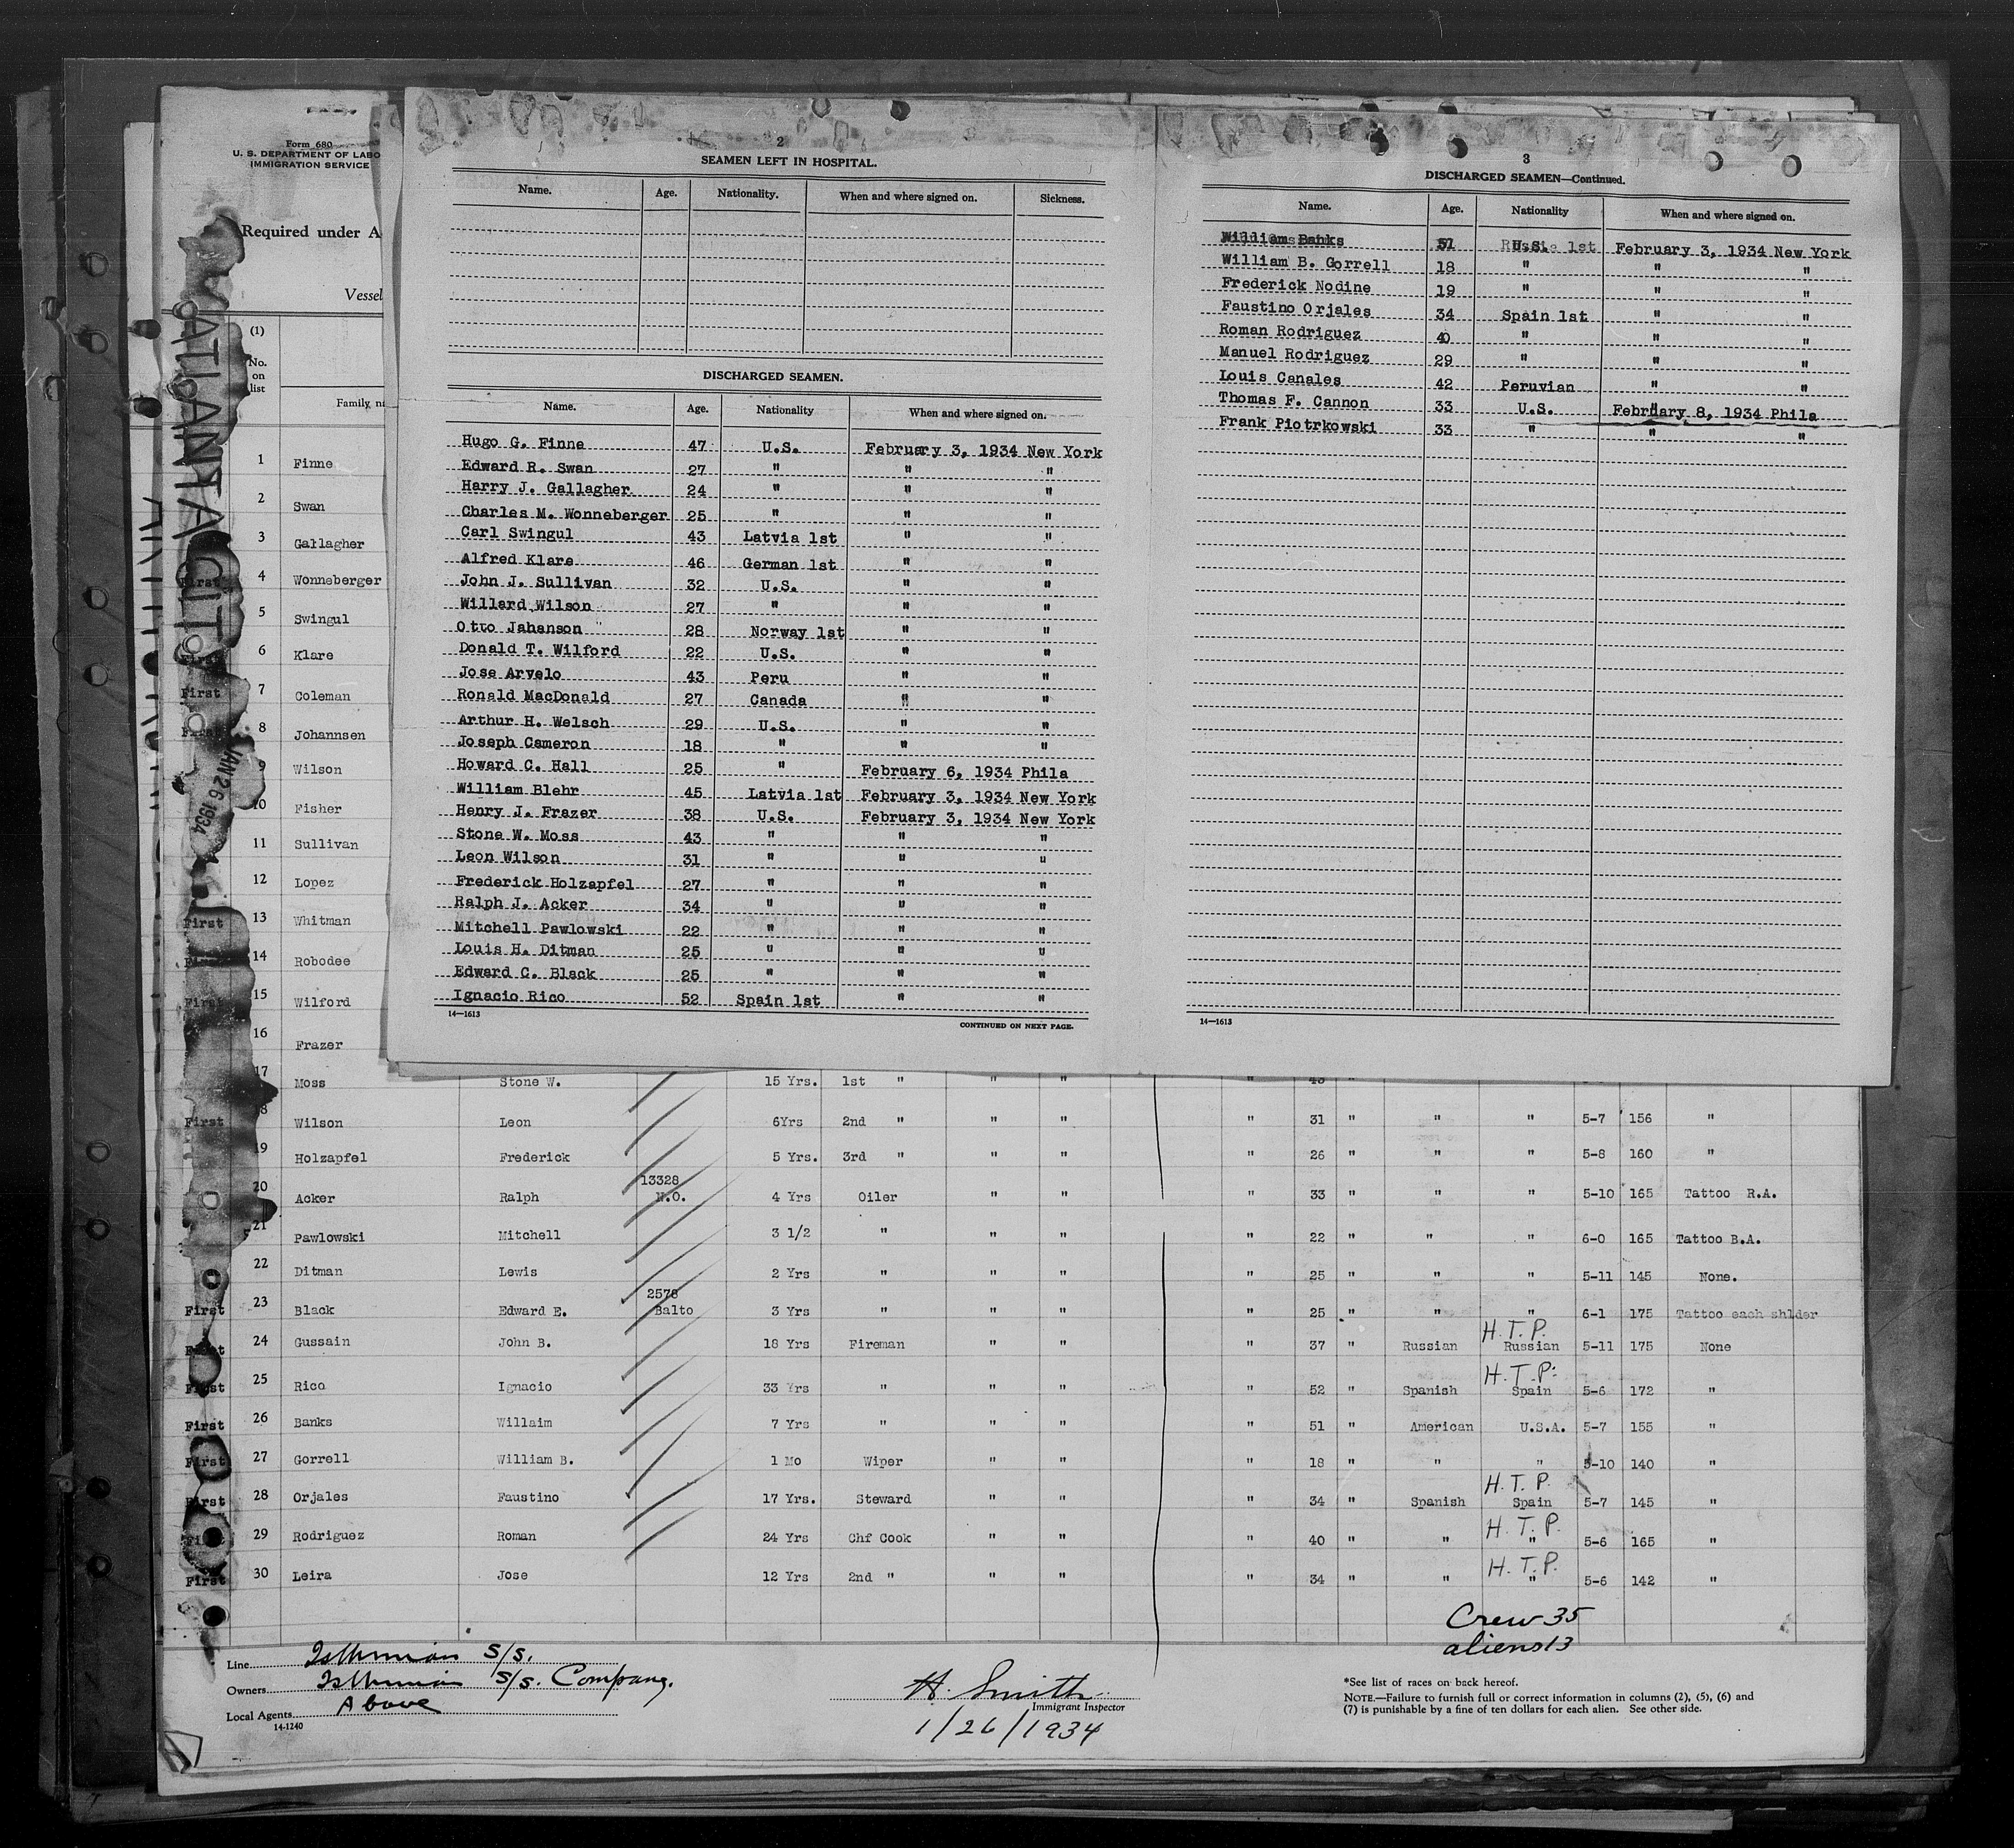 Form 680
U. S. DEPARTMENT OF LABO
IMMIGRATION SERVICE
Required under A
Vessel
ATLANTA CITY
JAN 26 1934
(1)
No. on list
Family na
1 Finne
2 Swan
3 Gallagher
First 4 Wonneberger
5 Swingul
First 6 Klare
First 7 Coleman
First 8 Johannsen
9 Wilson
10 Fisher
11 Sullivan
12 Lopez
First 13 Whitman
First 14 Robodee
First 15 Wilford
16 Frazer
2
SEAMEN LEFT IN HOSPITAL.
Name. Age. Nationality. When and where signed on. Sickness.
DISCHARGED SEAMEN.
Name. Age. Nationality When and where signed on.
Hugo G. Finne 47 U.S. February 3, 1934 New York
Edward R. Swan 27 " " "
Harry J. Gallagher 24 " " "
Charles M. Wonneberger 25 " " "
Carl Swingul 43 Latvia 1st " "
Alfred Klare 46 German 1st " "
John J. Sullivan 32 U.S. " "
Willard Wilson 27 " " "
Otto Jahanson 28 Norway 1st " "
Donald T. Wilford 22 U.S. " "
Jose Arvelo 43 Peru " "
Ronald MacDonald 27 Canada " "
Arthur H. Welsch 29 U.S. " "
Joseph Cameron 18 " " "
Howard C. Hall 25 " February 6, 1934 Phila
William Blehr 45 Latvia 1st February 3, 1934 New York
Henry J. Frazer 38 U.S. February 3, 1934 New York
Stone W. Moss 43 " " "
Leon Wilson 31 " " "
Frederick Holzapfel 27 " " "
Ralph J. Acker 34 " " "
Mitchell Pawlowski 22 " " "
Louis H. Ditman 25 " " "
Edward C. Black 25 " " "
Ignacio Rico 52 Spain 1st " "
14—1613 CONTINUED ON NEXT PAGE.
3
DISCHARGED SEAMEN—Continued.
Name. Age. Nationality When and where signed on.
William Banks 51 U.S. 1st February 3, 1934 New York
William B. Gorrell 18 " " "
Frederick Nodine 19 " " "
Faustino Orjales 34 Spain 1st " "
Roman Rodriguez 40 " " "
Manuel Rodriguez 29 " " "
Louis Canales 42 Peruvian " "
Thomas F. Cannon 33 U.S. February 8, 1934 Phila
Frank Piotrkowski 33 " " "
14—1613
17 Moss Stone W. 15 Yrs. 1st " " " " 43 "
First 18 Wilson Leon 6Yrs 2nd " " " " 31 " " " 5-7 156 "
19 Holzapfel Frederick 5 Yrs. 3rd " " " " 26 " " " 5-8 160 "
20 Acker Ralph 13328 N.O. 4 Yrs Oiler " " " 33 " " " 5-10 165 Tattoo R.A.
21 Pawlowski Mitchell 3 1/2 " " " " 22 " " " 6-0 165 Tattoo B.A.
22 Ditman Lewis 2 Yrs " " " " 25 " " " 5-11 145 None.
First 23 Black Edward E. 2578 Balto 3 Yrs " " " " 25 " " " 6-1 175 Tattoo each shlder
First 24 Gussain John B. 18 Yrs Fireman " " " 37 " Russian H.T.P. Russian 5-11 175 None
First 25 Rico Ignacio 33 Yrs " " " " 52 " Spanish H.T.P. Spain 5-6 172 "
First 26 Banks Willaim 7 Yrs " " " " 51 " American U.S.A. 5-7 155 "
First 27 Gorrell William B. 1 Mo Wiper " " " 18 " " " 5-10 140 "
First 28 Orjales Faustino 17 Yrs. Steward " " " 34 " Spanish H.T.P. Spain 5-7 145 "
First 29 Rodriguez Roman 24 Yrs Chf Cook " " " 40 " " H.T.P. " 5-6 165 "
First 30 Leira Jose 12 Yrs 2nd " " " " 34 " " H.T.P. " 5-6 142 "
Crew 35
aliens 13
Line Isthmian S/S.
Owners Isthmian S/S. Company.
Local Agents Above
14-1240
H. Smith
Immigrant Inspector
1/26/1934
*See list of races on back hereof.
NOTE.—Failure to furnish full or correct information in columns (2), (5), (6) and
(7) is punishable by a fine of ten dollars for each alien. See other side.